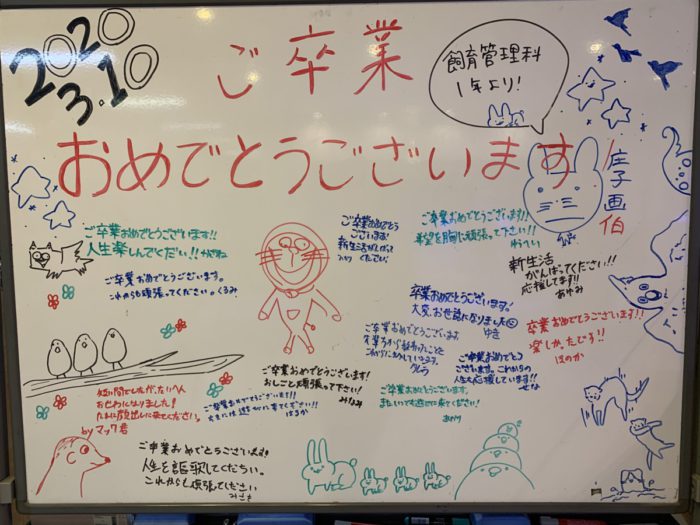 2020
3.10
ご卒業
おめでとうございます!
飼育管理科
1年より!
庄子画伯
ご卒業おめでとうございます!!
人生楽しんでください!!
ご卒業おめでとうございます。
これからも頑張ってください。くるみ
ご卒業おめでとう
ございます!
新生活
ください
ご卒業おめでとうございます!!
希望を胸に頑張って下さい!
新生活
がんばってください!!
応援してます!!
あゆみ
卒業おめでとうございます!
大変、お世話になりました
ゆき
卒業おめでとうございます!!
楽しかったじょ!!
ほのか
ご卒業おめでとうございます
ご卒業おめでとうございます!
おしごと頑張って下さい!
みなみ
ご卒業おめでとう
ございます。これからの
人生も応援しています!!
せな
短い間でしたが、たいへん
おせわになりました!
たまに顔出しに来てください。
byマック君
ご卒業おめでとうございます!!
はるか
ご卒業おめでとうございます。
またいつでも遊びに来てください!
ご卒業おめでとうございます!
人生を謳歌してください。
これからも頑張ってください
みさき